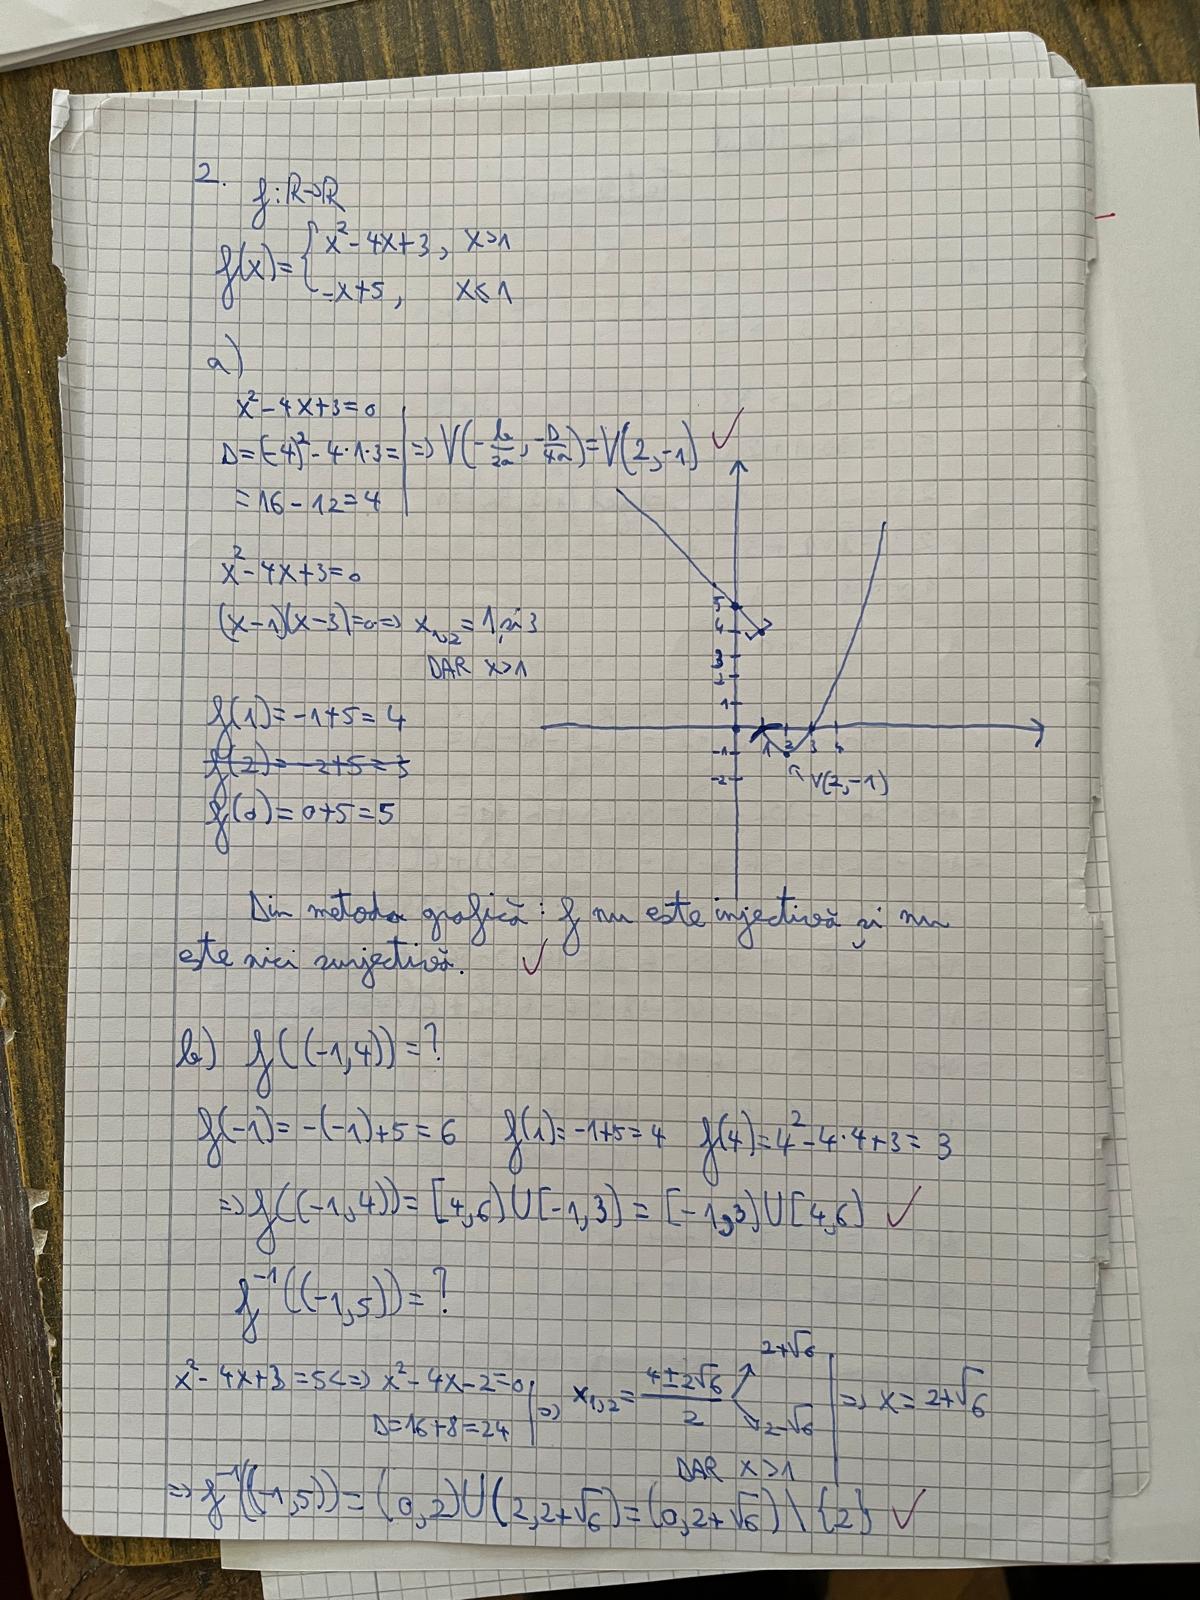 2.
f: ℝ→ℝ
f(x) = { x² - 4x + 3, x>1
-x+5, x≤1
a)
x² - 4x + 3 = 0
D = (-4)² - 4·1·3 = | => V(-b/2a, -D/4a) = V(2, -1) ✓
= 16 - 12 = 4
x² - 4x + 3 = 0
(x-1)(x-3) = 0 => x₁,₂ = 1 și 3
DAR x>1
f(1) = -1+5 = 4
f(2) = -2+5 = 3
f(0) = 0+5 = 5
5
4
3
2
1
1 2 3 4
-1
-2
V(2,-1)
Din metoda grafică: f nu este injectivă și nu
este nici surjectivă. ✓
b) f((-1,4)) = ?
f(-1) = -(-1)+5 = 6 f(1) = -1+5 = 4 f(4) = 4² - 4·4 + 3 = 3
=> f((-1,4)) = [4,6) ∪ [-1,3) = [-1,3) ∪ [4,6) ✓
f⁻¹((-1,5)) = ?
x² - 4x + 3 = 5 <=> x² - 4x - 2 = 0 | => x₁,₂ = (4 ± 2√6)/2 ↗ 2+√6 ↘ 2-√6 | => x = 2+√6
D = 16 + 8 = 24
DAR x>1
=> f⁻¹((-1,5)) = (0,2) ∪ (2, 2+√6) = (0, 2+√6) \ {2} ✓